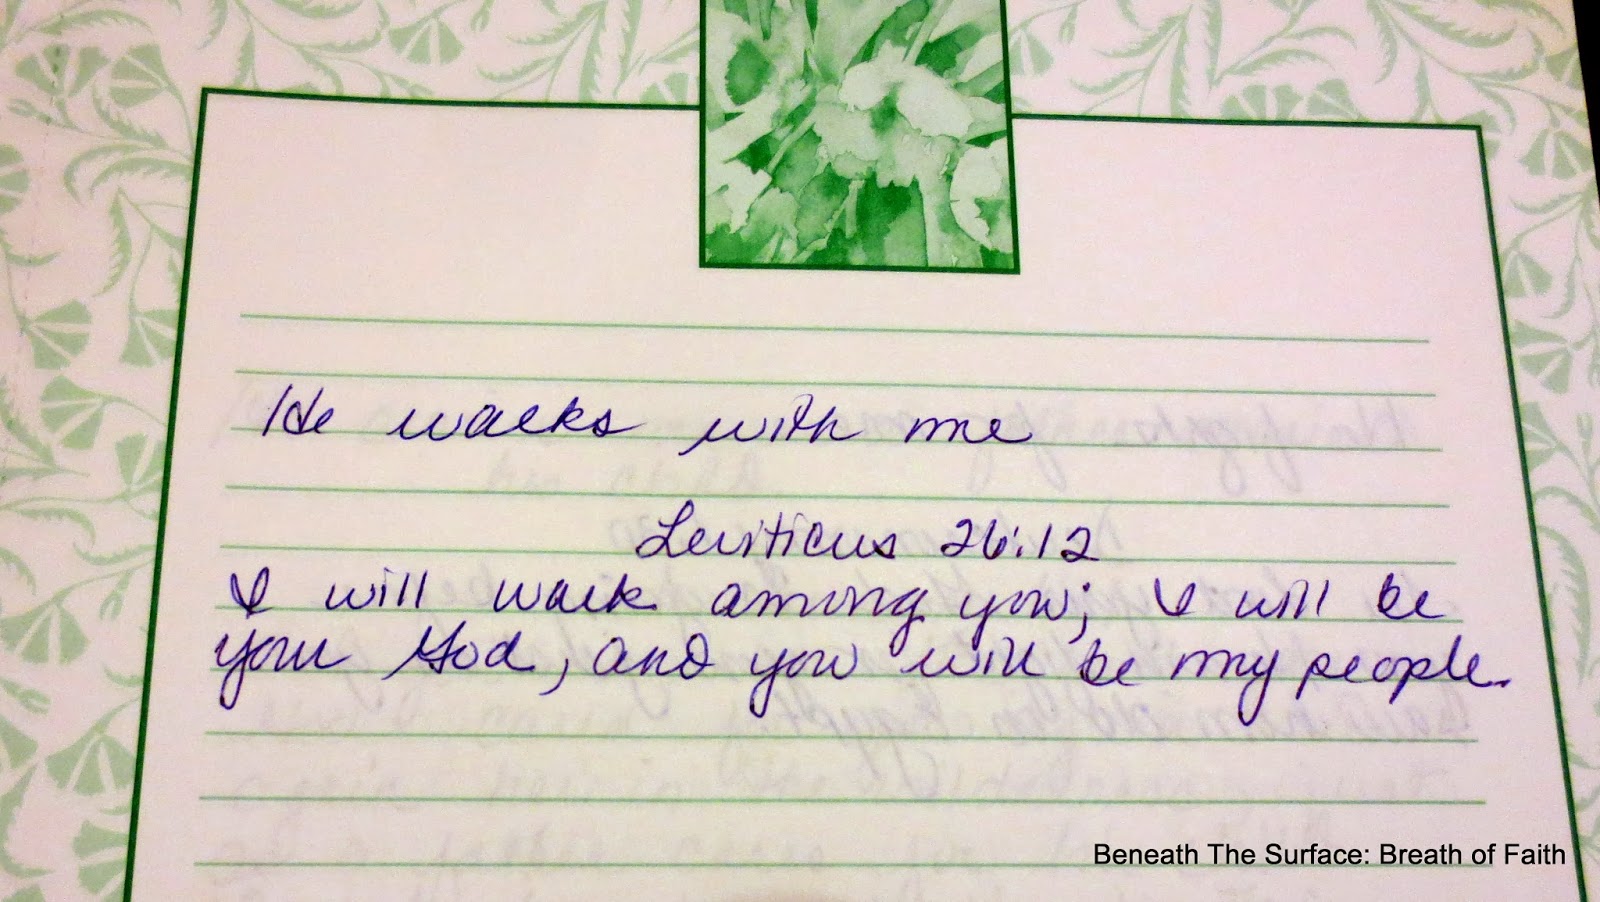 He walks with me
Leviticus 26:12
I will walk among you; I will be
your God, and you will be my people.
Beneath The Surface: Breath of Faith